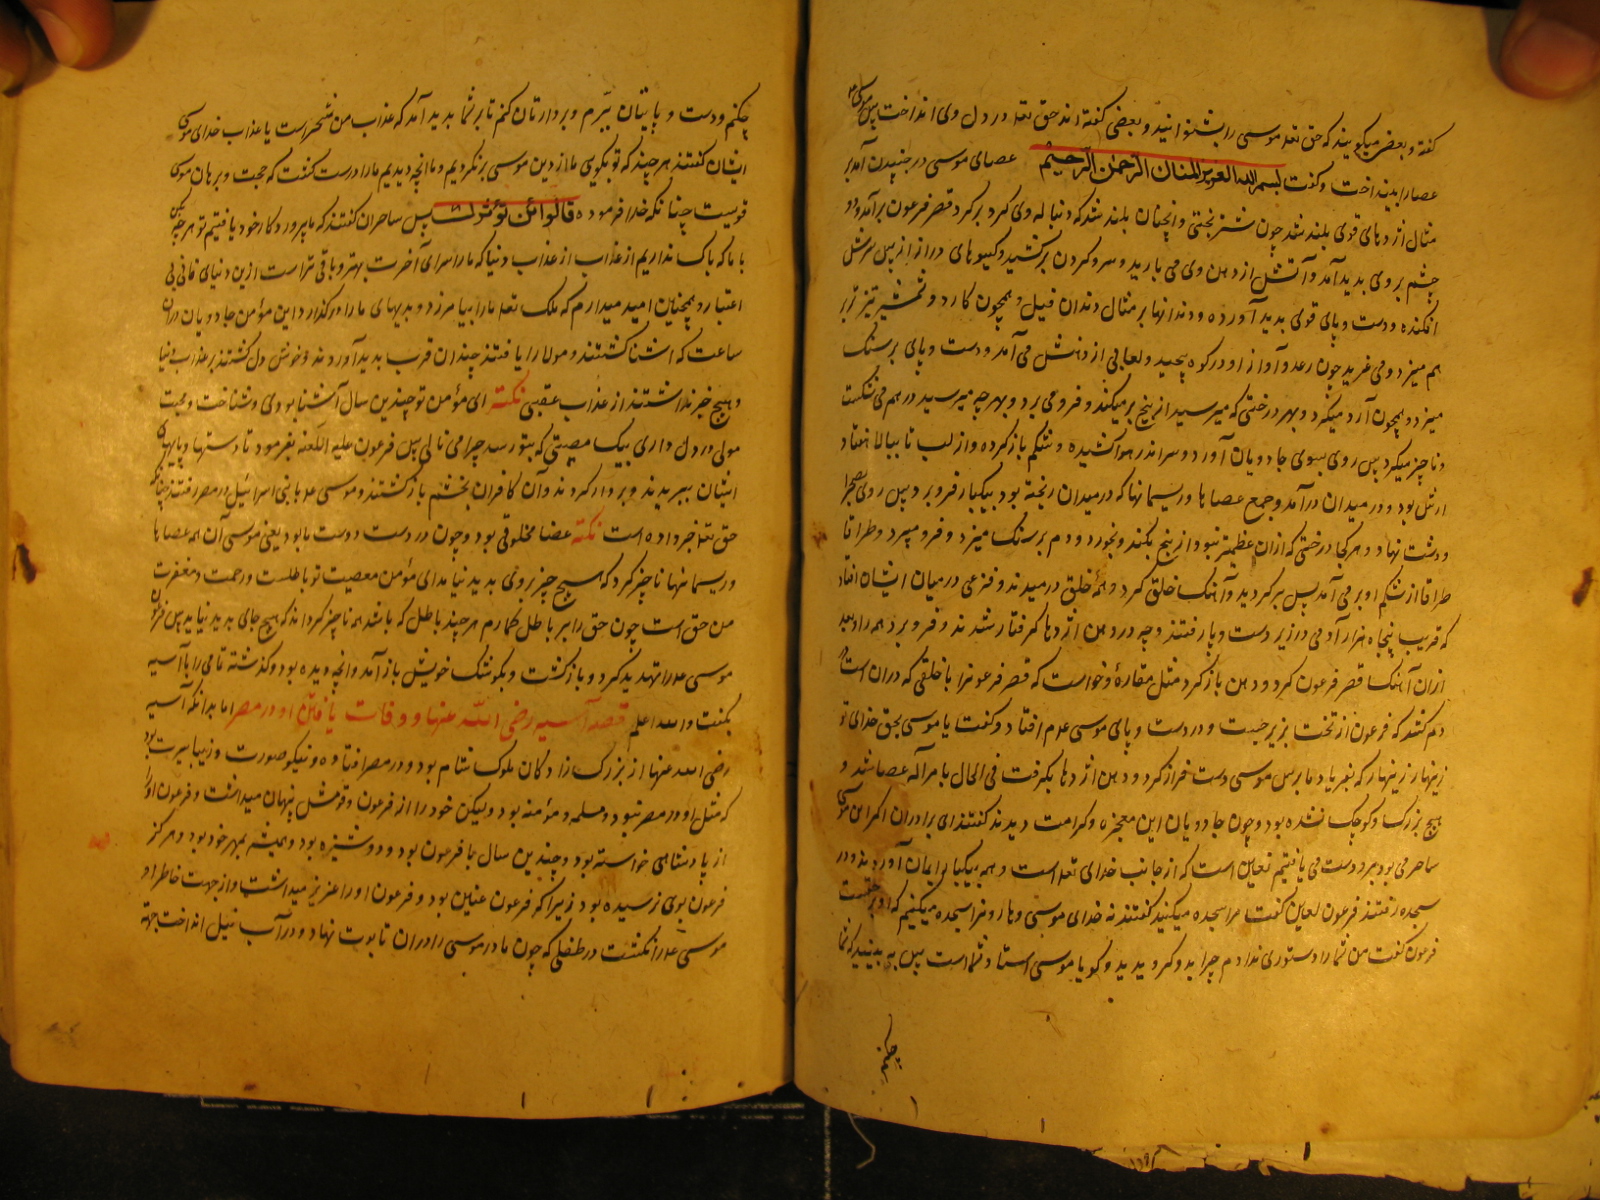 گفته و بعضی میگویند که حق تعه موسی را بشنوانید و بعضی گفته اند حق تعه در دل وی انداخت پس موسی
عصا را بینداخت و گفت بسم الله العزیز المنان الرحمن الرحیم عصای موسی در جنبیدن آمد بر
مثال اژدهای قوی بلند شد چون شتر بختی و انچنان بلند شد که دنباله وی گرد بر گرد قصر فرعون برآمد و دو
چشم بروی بدید آمد و آتش از دهن وی می بارید و سر و گردن برکشید و گیسوهای دراز از پس سرش
افکنده و دست و پای قوی بدید آورده و دندانها بر مثال دندان فیل و همچون کارد و شمشیر تیز بر
هم میزد و می غرید چون رعد و آواز او در کوه پیچید و لعابی از دهنش می آمد و دست و پای بر سنک
میزد و همچون آرد میکرد و بهر درختی که میرسید از بیخ بر میکند و فرو می برد و بهر چه میرسید درهم می شکست
و ناچیز میکرد پس روی بسوی جادویان آورد و سر اندر هوا کشیده و شکم باز کرده و از لب تا ببالا هفتاد
ارش بود و در میدان درآمد و جمع عصاها و ریسمانها که در میدان ریخته بود بیکبار فرو برد پس روی بصحرا
و دشت نهاد و هر کجا درختی که ازان عظیمتر نبود از بیخ بکند و بخورد و دم بر سنک میزد و فرو میبرد و طراقا
طراقا از شکم او بر می آمد پس برگردید و آهنک خلق کرد و همه خلق در رمیدند و فزعی در میان ایشان افتاد
که قریب پنجاه هزار آدمی در زیر دست و پا رفتند و چه در دهن اژدها گرفتار شدند و فرو برد همه را و بعد
ازان آهنک قصر فرعون کرد و دهن باز کرد مثل مغاره و خواست که قصر فرعونرا با خلقی که دران است
دم کشد که فرعون از تخت بزیر جست و در دست و پای موسی علیه السلام افتاد و گفت یا موسی بحق خدای تو
زینهار زینهار که بفریاد ما برس موسی دست فراز کرد و دهن اژدها بگرفت فی الحال با مر آله عصا شد و
هیچ بزرک و کوچک نشده بود و چون جادویان این معجزه و کرامت دیدند گفتند ای برادران اگر این موسی
ساحر می بود برو دست می یافتیم تعیین است که از جانب خدای تعه است و همه بیکبار ایمان آوردند و در
سجده رفتند فرعون لعین گفت مرا سجده میکنید گفتند نه خدای موسی و هارونرا سجده میکنیم که او برحقست
فرعون گفت من شما را دستوری ندادم چرا بدو گرویدید و گویا موسی استاد شما است پس به بینید که شما
چکنم
چکنم و دست و پایتان ببرم و بر دارتان کنم تا بر شما بدید آمد که عذاب من سخت تر است یا عذاب خدای موسی
ایشان گفتند هر چند که تو بگویی ما از دین موسی برنگردیم و ما انچه دیدیم ما را درست گشت که حجت و برهان موسی
قویست چنانکه خدا فرموده قالوا لن نؤثرک پس ساحران گفتند که ما پروردکار خود یافتیم تو هر چه
با ما که باک نداریم از عذاب از عذاب دنیا که ما را سرای آخرت بهتر و باقی تر است ازین دنیای فانی بی
اعتبار و همچنین امید میدارم که ملک تعه ما را بیامرزد و بدیهای ما را درگذارد این مؤمن جادویان دران
ساعت که آشنا گشتند و مولا را یافتند چندان قرب بدید آوردند و خوش دل گشتند بر عذاب دنیا
و هیچ خبر نداشتند از عذاب عقبی نکته ای مؤمن تو چندین سال آشنا بودی و شناخت و محبت
مولی در دل داری بیک مصیبتی که بتو رسد چرا می نالی پس فرعون علیه اللعنه بفرمود تا دستها و پایهای
ایشان ببریدند و بر دار کردند و آن کافران بخشم بازگشتند و موسی علیه با بنی اسرائیل در مصر رفتند چنانکه
حق تعه خبر داده است نکته عصا مخلوقی بود و چون در دست دوست ما بود یعنی موسی آن همه عصاها
و ریسمانها ناچیز کرد که هیچ چیز بروی بدید نیامد ای مؤمن معصیت تو باطلست و رحمت و مغفرت
من حق است چون حق را بر باطل گمارم هر چند باطل که باشد همه ناچیز گرداند که هیچ جای بدید نیاید پس فرعون
موسی علیه را تهدید کرد و بازگشت و بکوشک خویش باز آمد و انچه دیده بود و گذشته تمامی را با آسیه
بگفت والله اعلم قصه آسیه رضی الله عنها و وفات یافتن او در مصر اما بدانکه آسیه
رضی الله عنها از بزرک زادکان ملوک شام بود و در مصر افتاده و نیکو صورت و زیبا سیرت بود
که مثل او در مصر نبود و مسلمه و مؤمنه بود ولیکن خود را از فرعون و قومش پنهان میداشت و فرعون او را
از پادشاهی خواسته بود و چندین سال با فرعون بود و دوشیزه بود و همیشه بمهر خود بود و هرگز
فرعون بوی نرسیده بود زیرا که فرعون عنین بود و فرعون او را عزیز میداشت و از جهت خاطر او
موسی علیه را نکشت در طفلی که چون مادر موسی را دران تابوت نهاد و در آب نیل انداخت بهته